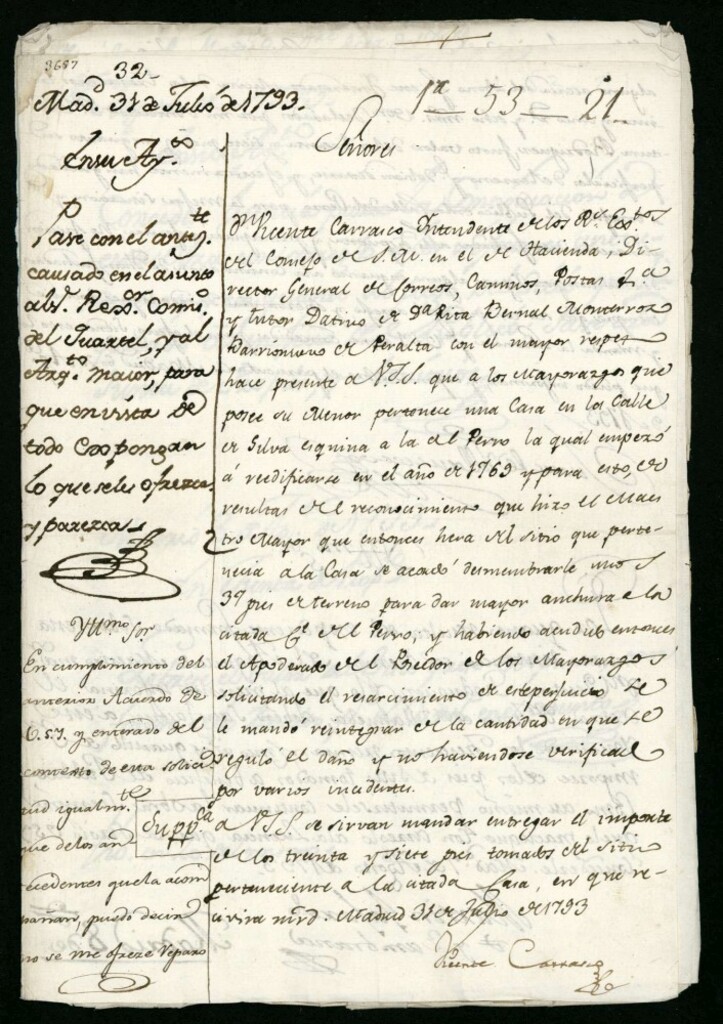 3687
32
Mad.d 31 de Julio de 1793.
1ª 53 21
En su Ay.to
Señores
Pase con el antez.te
causado en el asunto
al S.r Rex.or Comis.o
del Quartel, y al
Arq.to maior, para
que en vista de
todo Expongan
lo que seles ofrezca,
y parezca
D.n Vicente Carrasco Intendente de los R.s Ex.tos
del Consejo de S.M. en el de Hacienda, Di
rector General de Correos, Caminos, Postas &.a
y tutor Dativo de D.a Rita Bernal Monterroz
Barrionuevo de Peralta con el mayor respeto
hace presente a V.S.S. que a los Mayorazgos que
posee su Menor pertenece una Casa en la Calle
de Silva esquina a la del Perro la qual empezó
á reedificarse en el año de 1769 y para esto, de
resultas del reconocimiento que hizo el Maes
tro Mayor que entonces hera del sitio que perte
necia a la Casa se acordó desmembrarle unos
37 pies de terreno para dar mayor anchura a la
citada C.e del Perro, y habiendo acudido entonces
el Apoderado del Poseedor de los Mayorazgos
solicitando el resarcimiento de este perjuicio se
le mandó reintegrar de la cantidad en que se
reguló el daño y no haviendose verificado
por varios incidentes.
Supp.ca
a V.S.S. se sirvan mandar entregar el importe
de los treinta y siete pies tomados del sitio
perteneciente a la citada Casa, en que re-
civira mrd. Madrid 31 de Julio de 1793
Vicente Carrasco
Yll.mo Sor
En cumplimiento del
anterior Acuerdo de
V.S.I. y enterado del
contexto de esta solici
tud igualm.te
que delos an
tecedentes quela acom
pañan, puedo decir
no se me ofreze reparo